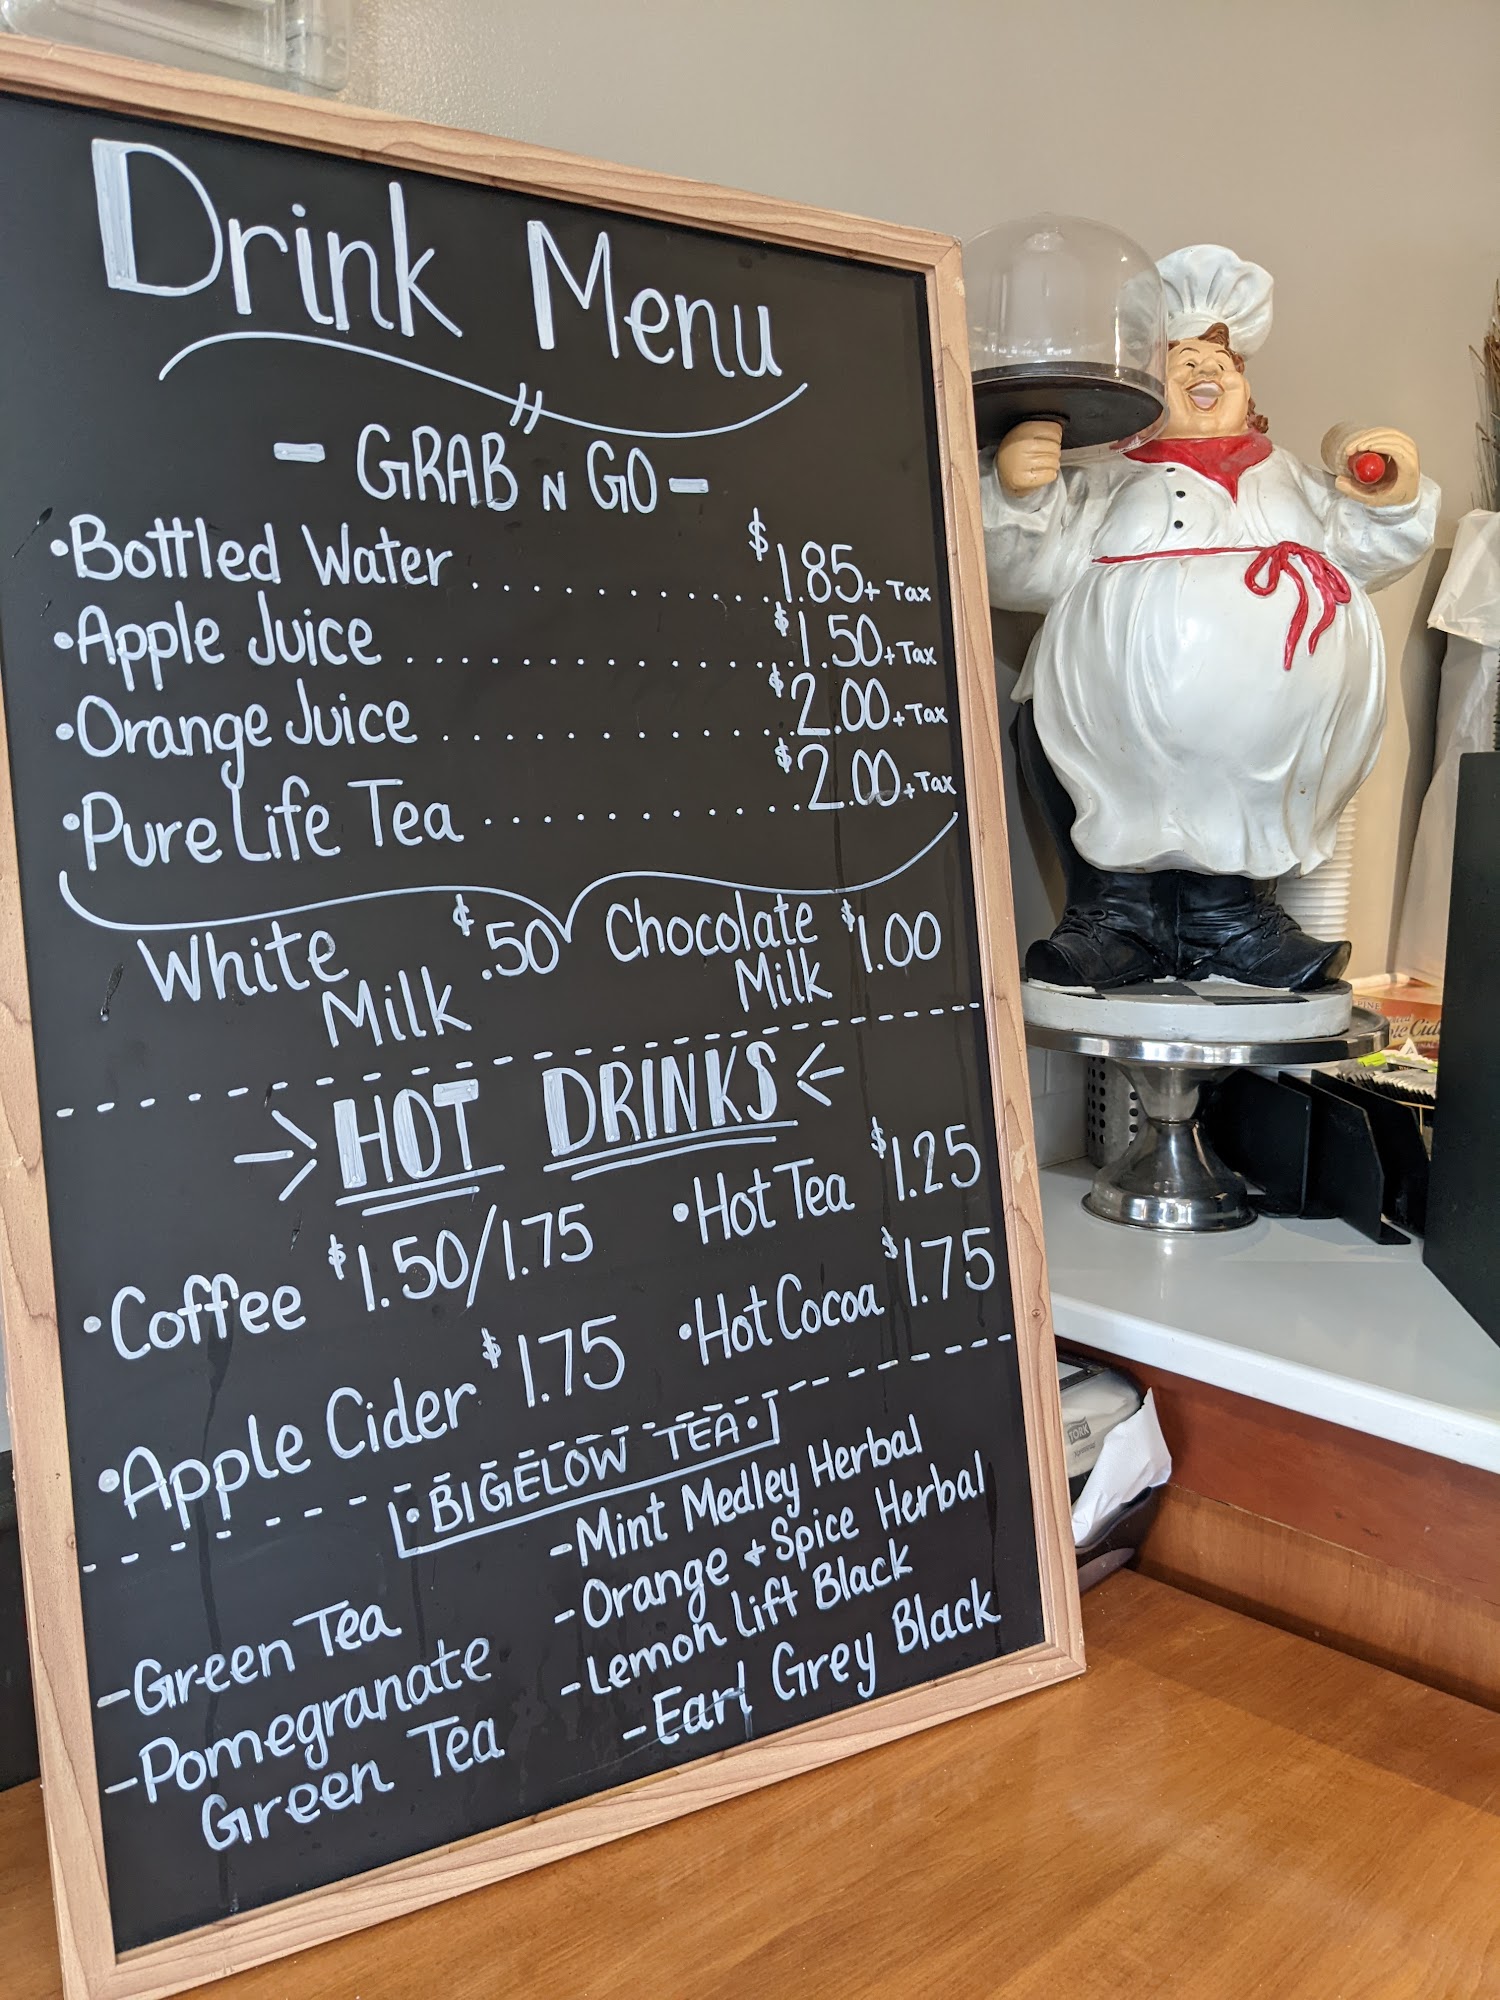 Drink Menu
- GRAB N GO -
•Bottled Water ............ $1.85 + Tax
•Apple Juice ............... $1.50 + Tax
•Orange Juice .............. $2.00 + Tax
•Pure Life Tea ............. $2.00 + Tax
White Milk ¢.50
Chocolate Milk $1.00
HOT DRINKS
•Coffee $1.50/1.75
•Hot Tea $1.25
•Apple Cider $1.75
•Hot Cocoa $1.75
•BIGELOW TEA•
-Green Tea
-Pomegranate
Green Tea
-Mint Medley Herbal
-Orange + Spice Herbal
-Lemon Lift Black
-Earl Grey Black
TORK